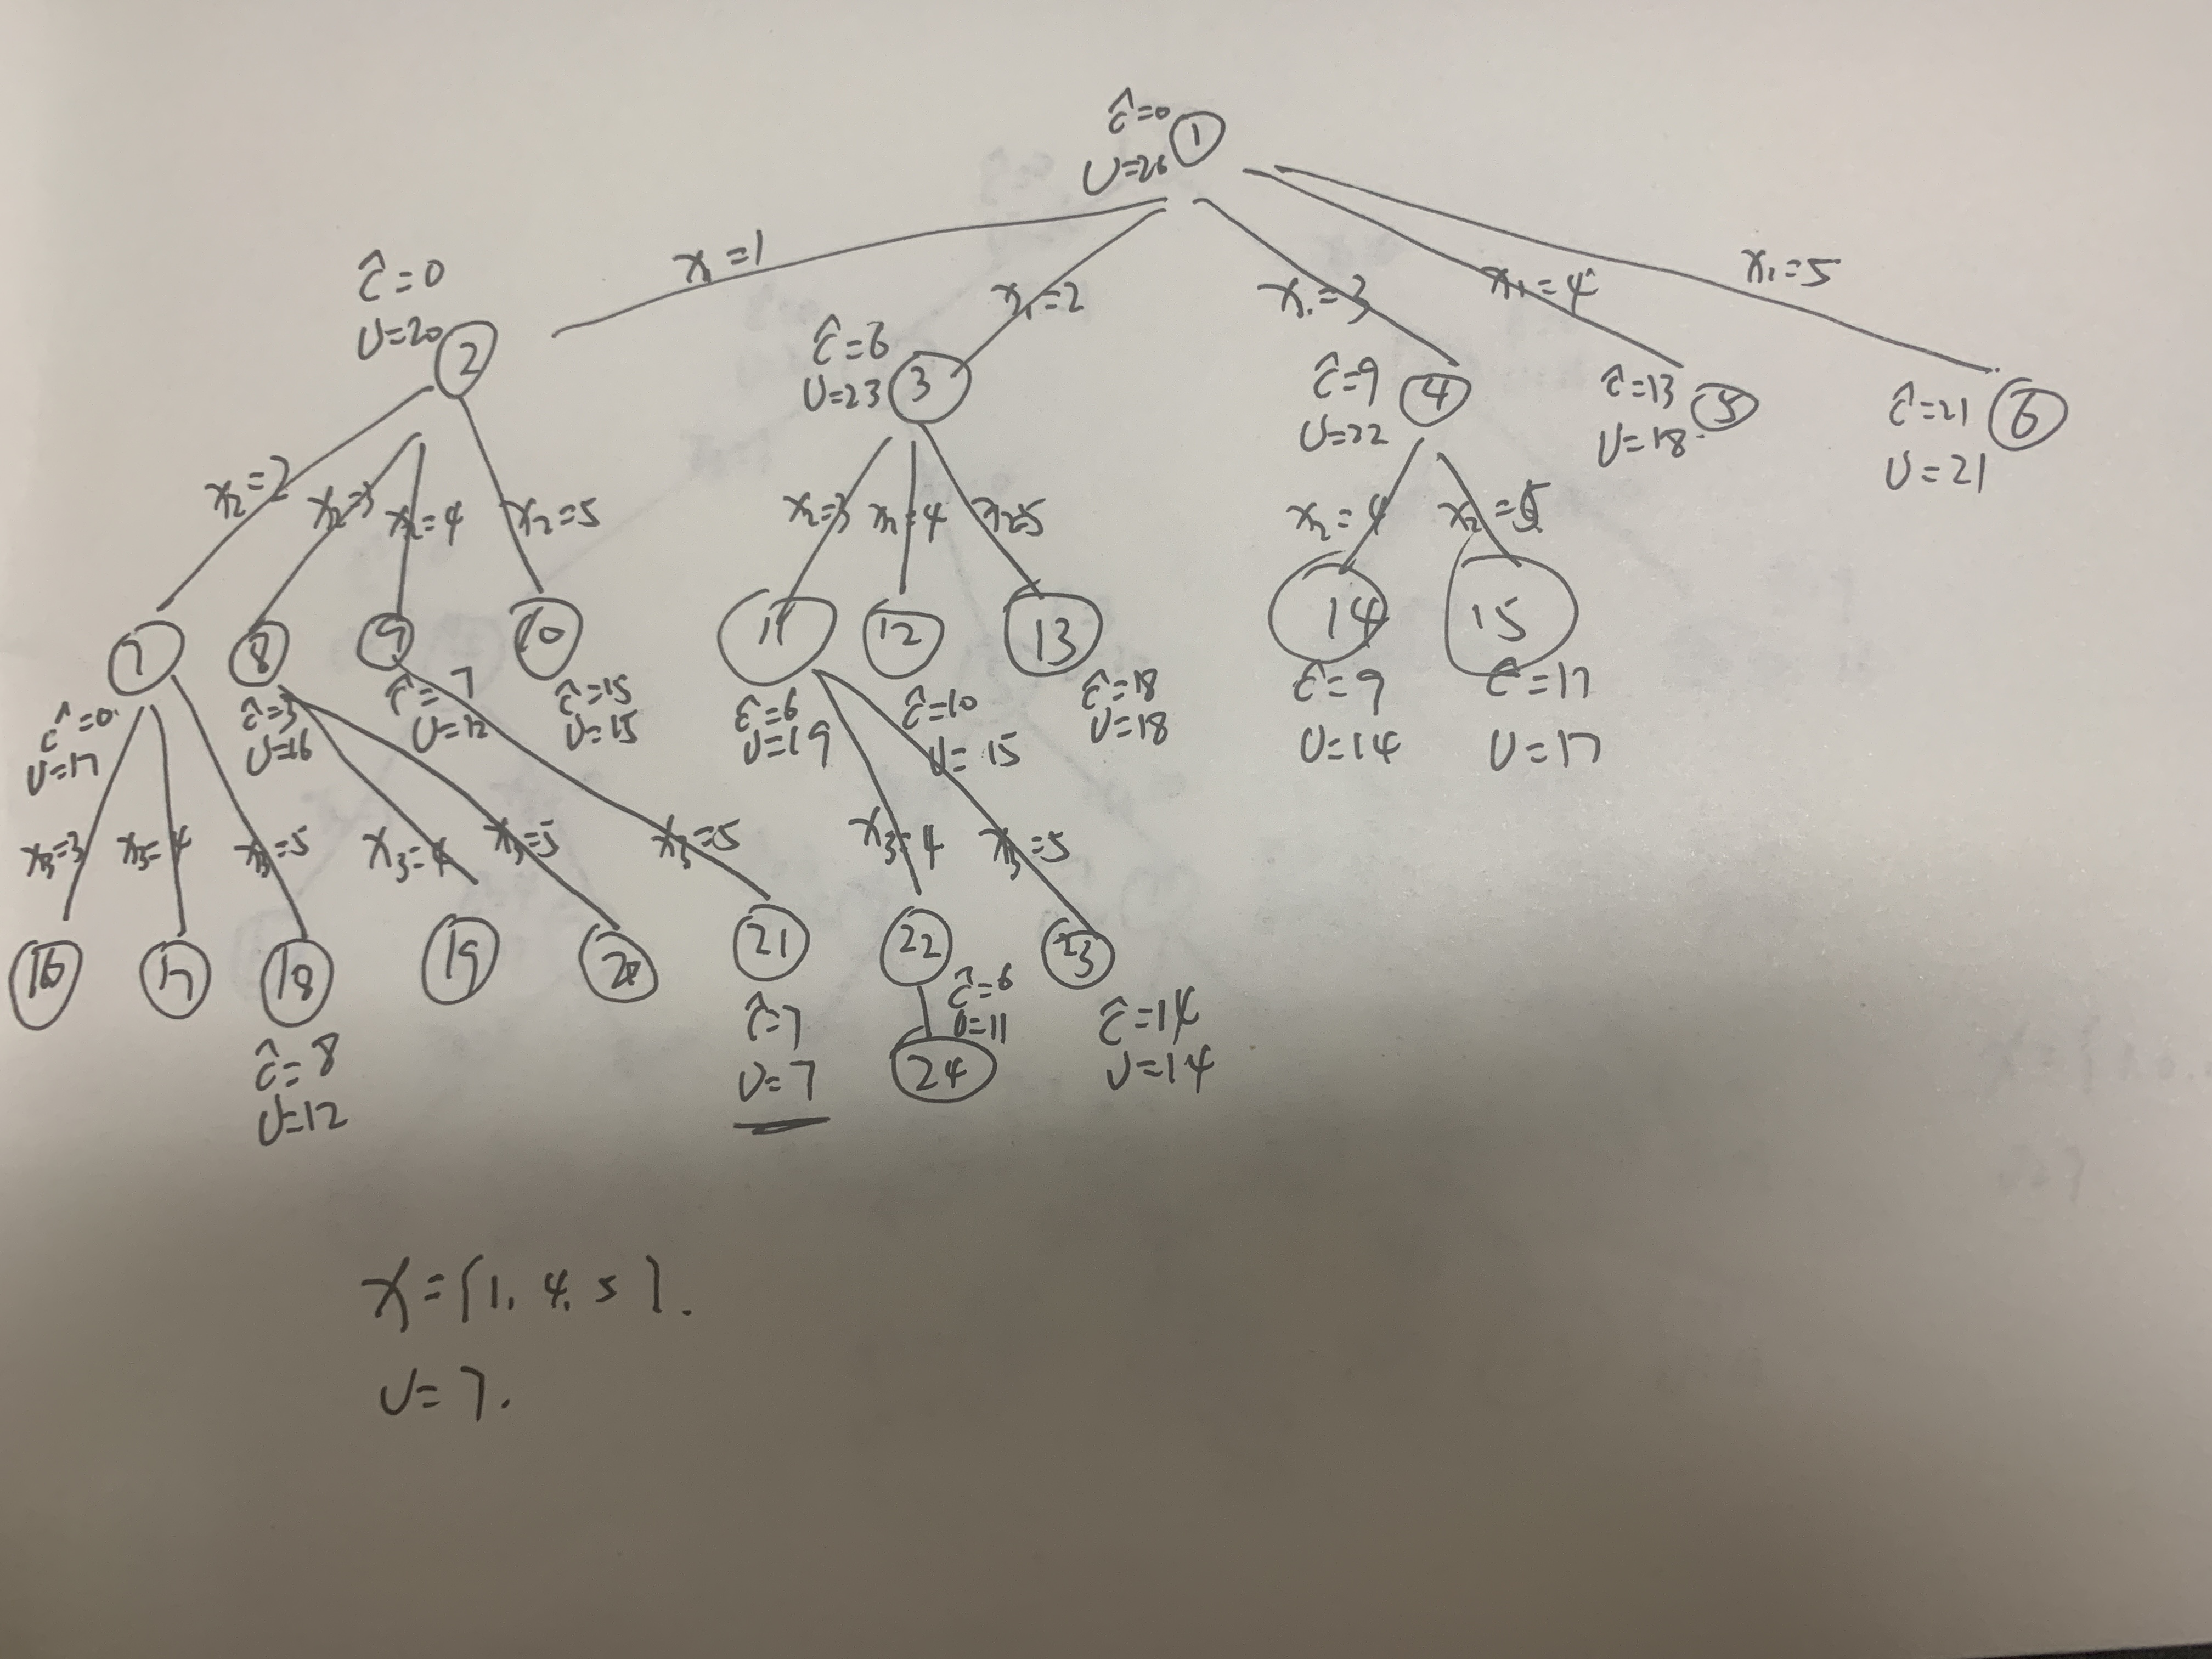 ĉ=0
U=26 1
x1=1
x1=2
x1=3
x1=4
x1=5
ĉ=0
U=20 2
ĉ=6
U=23 3
ĉ=9
U=22 4
ĉ=13
U=18 5
ĉ=21
U=21 6
x2=2
x2=3
x2=4
x2=5
x2=3
x2=5
x2=4
x2=5
7
ĉ=0
U=17
8
U=16
9
ĉ=7
U=12
10
ĉ=15
U=15
11
ĉ=6
U=19
12
ĉ=10
U=15
13
ĉ=18
U=18
14
ĉ=9
U=14
15
ĉ=17
U=17
x3=3
x3=4
x3=5
x3=4
x3=5
x3=5
x3=4
x3=5
16
17
18
ĉ=8
U=12
19
20
21
ĉ=7
U=7
22
ĉ=6
U=11
23
U=14
24
X={1,4,5}.
U=7.